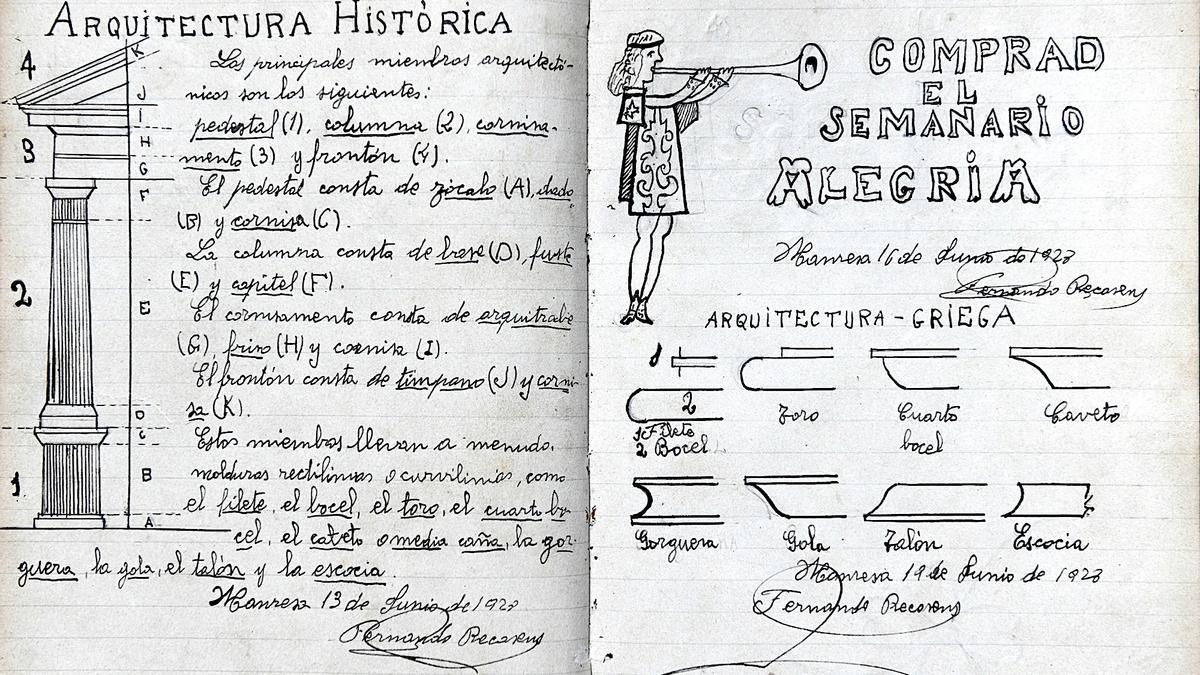 ARQUITECTURA HISTÒRICA
Los principales miembros arquitectó-
nicos son los siguientes:
pedestal (1), columna (2), cornisa-
mento (3) y frontón (4).
El pedestal consta de zócalo (A), dado
(B) y cornisa (C).
La columna consta de base (D), fuste
(E) y capitel (F).
El cornisamento consta de arquitrabe
(G), friso (H) y cornisa (I).
El frontón consta de tímpano (J) y corni-
sa (K).
Estos miembros llevan a menudo,
molduras rectilinias o curvilinias, como
el filete, el bocel, el toro, el cuarto bo-
cel, el caveto o media caña, la gor-
guera, la gola, el talón y la escocia.
Manresa 13 de Junio de 1928
Fernando Recasens
4
3
2
1
K
J
I
H
G
F
E
D
C
B
A
COMPRAD
EL
SEMANARIO
ALEGRIA
Manresa 16 de Junio de 1928
Fernando Recasens
ARQUITECTURA-GRIEGA
1
2
1 Filete
2 Bocel
Toro
Cuarto
bocel
Caveto
Gorguera
Gola
Talón
Escocia
Manresa 19 de Junio de 1928
Fernando Recasens